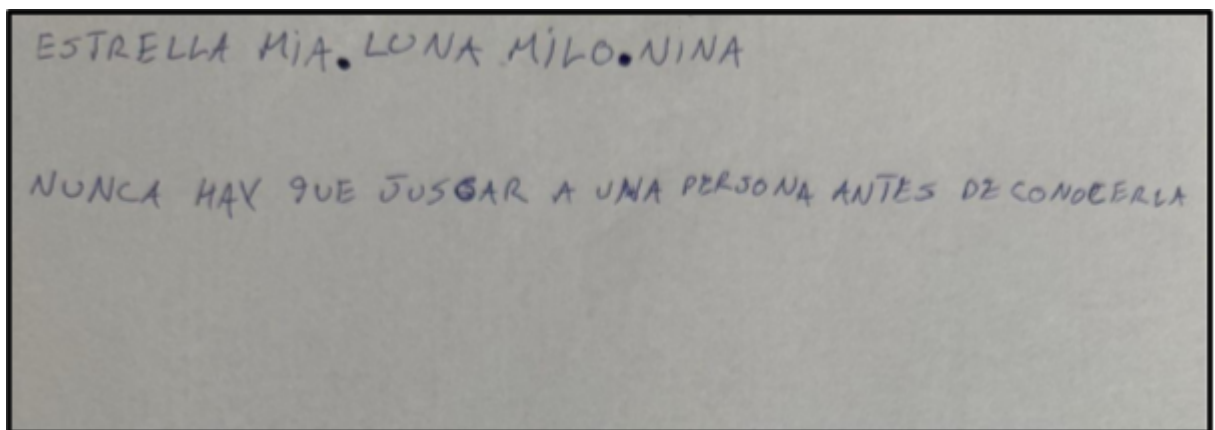 ESTRELLA MiA. LUNA MiLO. NINA
NUNCA HAY QUE JUSGAR A UNA PERSONA ANTES DE CONOCERLA